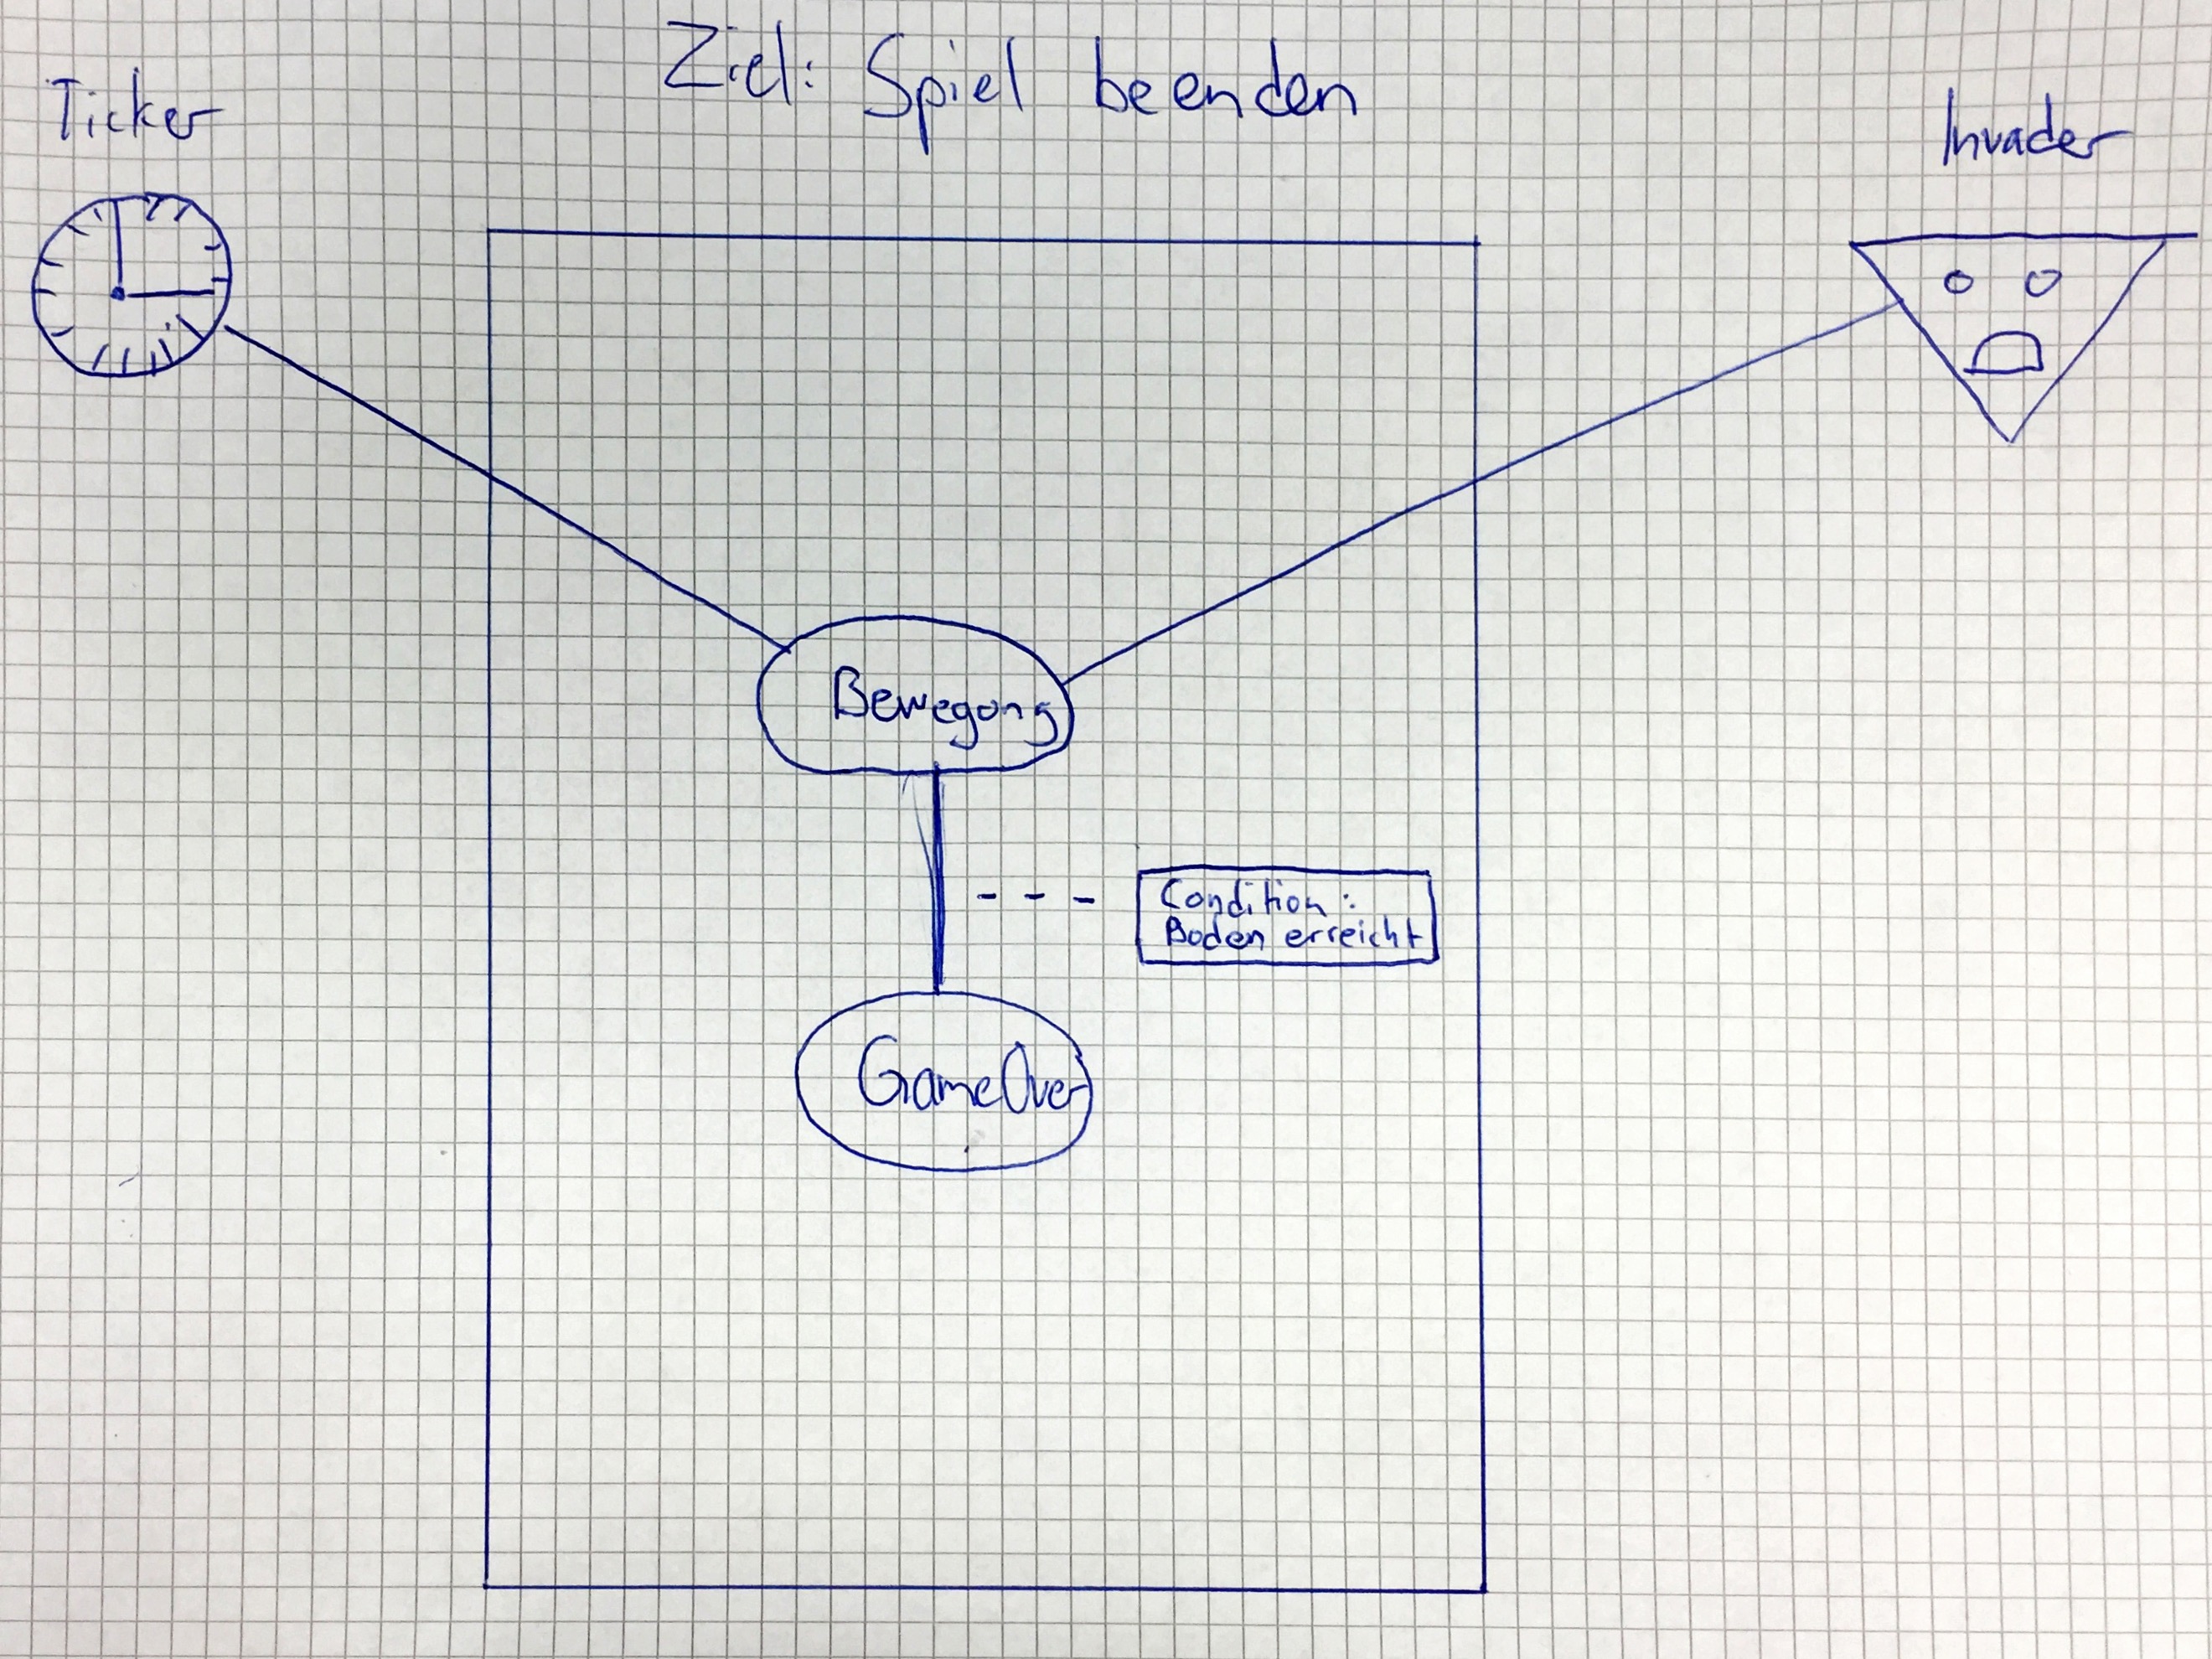 Ziel: Spiel beenden
Ticker
Invader
Bewegung
Condition:
Boden erreicht
GameOver